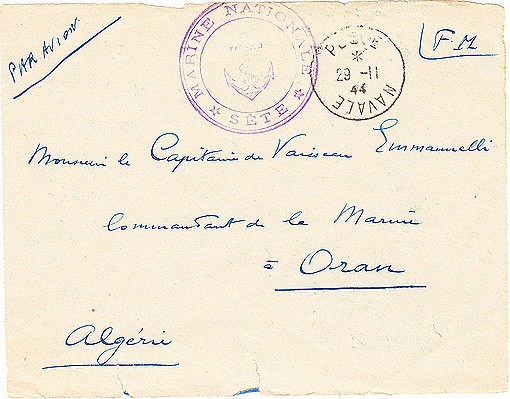 PAR AVION
MARINE NATIONALE
★ SÈTE ★
POSTE
*
29 -11
44
NAVALE
F.M
Monsieur le Capitaine de Vaisseau Emmanuelli
Commandant de la Marine
à Oran
Algérie